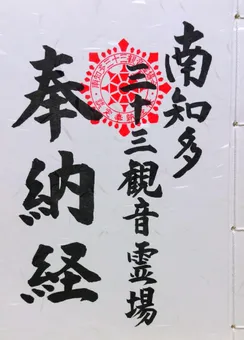 南知多
三十三観音霊場
奉納経